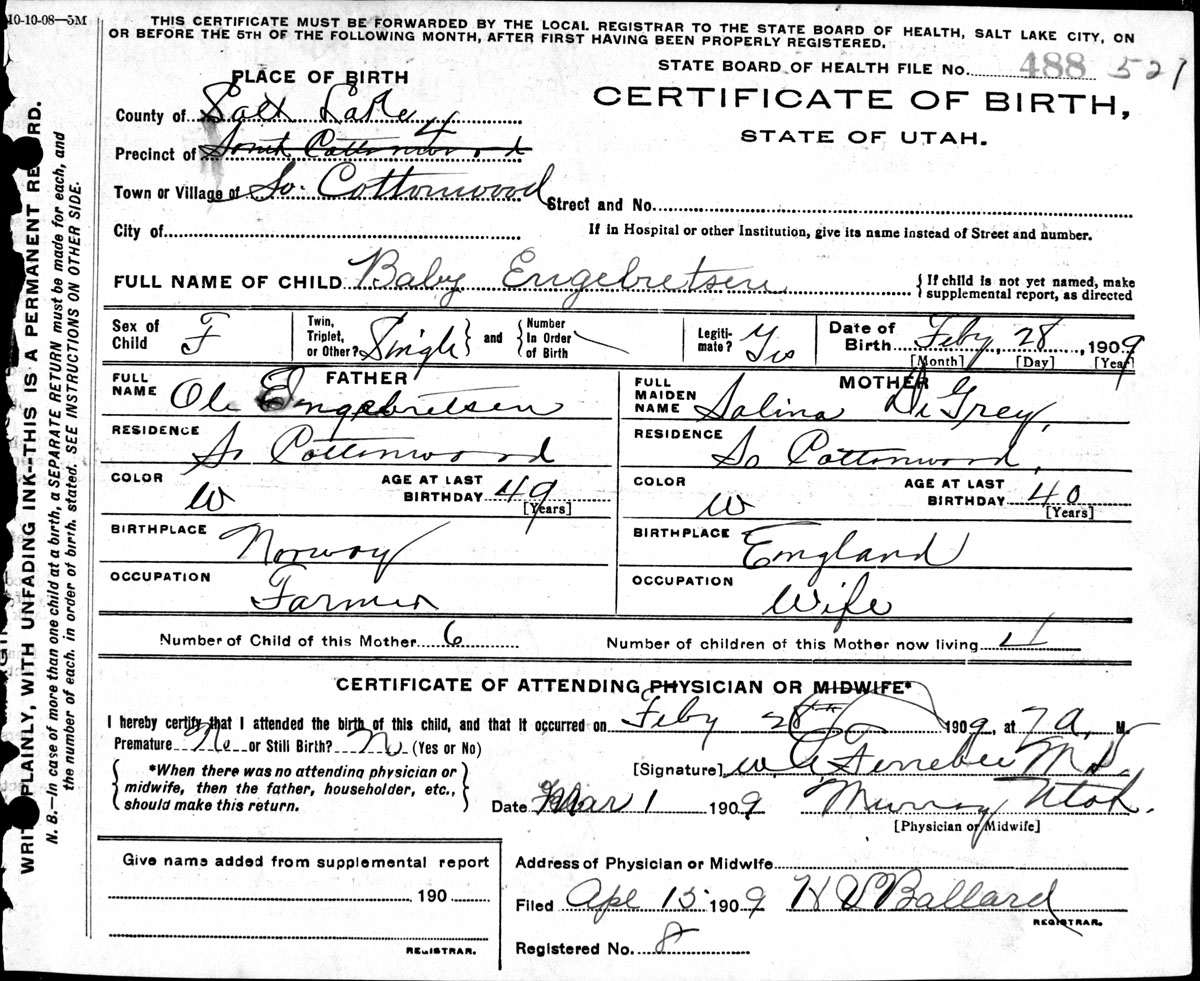 10-10-08—5M
THIS CERTIFICATE MUST BE FORWARDED BY THE LOCAL REGISTRAR TO THE STATE BOARD OF HEALTH, SALT LAKE CITY, ON
OR BEFORE THE 5TH OF THE FOLLOWING MONTH, AFTER FIRST HAVING BEEN PROPERLY REGISTERED.
STATE BOARD OF HEALTH FILE No. 488 527
CERTIFICATE OF BIRTH,
STATE OF UTAH.
PLACE OF BIRTH
County of Salt Lake
4
Precinct of South Cottonwood
Town or Village of So. Cottonwood
Street and No.
City of
If in Hospital or other Institution, give its name instead of Street and number.
FULL NAME OF CHILD Baby Engebretsen
{ If child is not yet named, make
supplemental report, as directed
Sex of Child F
Twin, Triplet, or Other? Single } and { Number In Order of Birth
Legiti-mate? Yes
Date of Birth Feby 28, 1909
[Month] [Day] [Year]
FATHER
FULL NAME Ole Engebretsen
RESIDENCE So Cottonwood
COLOR W
AGE AT LAST BIRTHDAY 49
[Years]
BIRTHPLACE Norway
OCCUPATION Farmer
MOTHER
FULL MAIDEN NAME Salina De Grey,
RESIDENCE So Cottonwood,
COLOR W
AGE AT LAST BIRTHDAY 40
[Years]
BIRTHPLACE England
OCCUPATION Wife
Number of Child of this Mother 6
Number of children of this Mother now living 4
CERTIFICATE OF ATTENDING PHYSICIAN OR MIDWIFE*
I hereby certify that I attended the birth of this child, and that it occurred on Feby 28th 1909, at 7 a. M.
Premature No or Still Birth? No (Yes or No)
{ *When there was no attending physician or
midwife, then the father, householder, etc.,
should make this return. }
[Signature] Ferrebee M.D.
Date Mar 1 1909
Murray Utah.
[Physician or Midwife]
Give name added from supplemental report
190
REGISTRAR.
Address of Physician or Midwife
Filed Apl 15 1909 H V Ballard
REGISTRAR.
Registered No. 8
WRITE PLAINLY, WITH UNFADING INK--THIS IS A PERMANENT RECORD.
N. B.—In case of more than one child at a birth, a SEPARATE RETURN must be made for each, and
the number of each, in order of birth, stated. SEE INSTRUCTIONS ON OTHER SIDE.